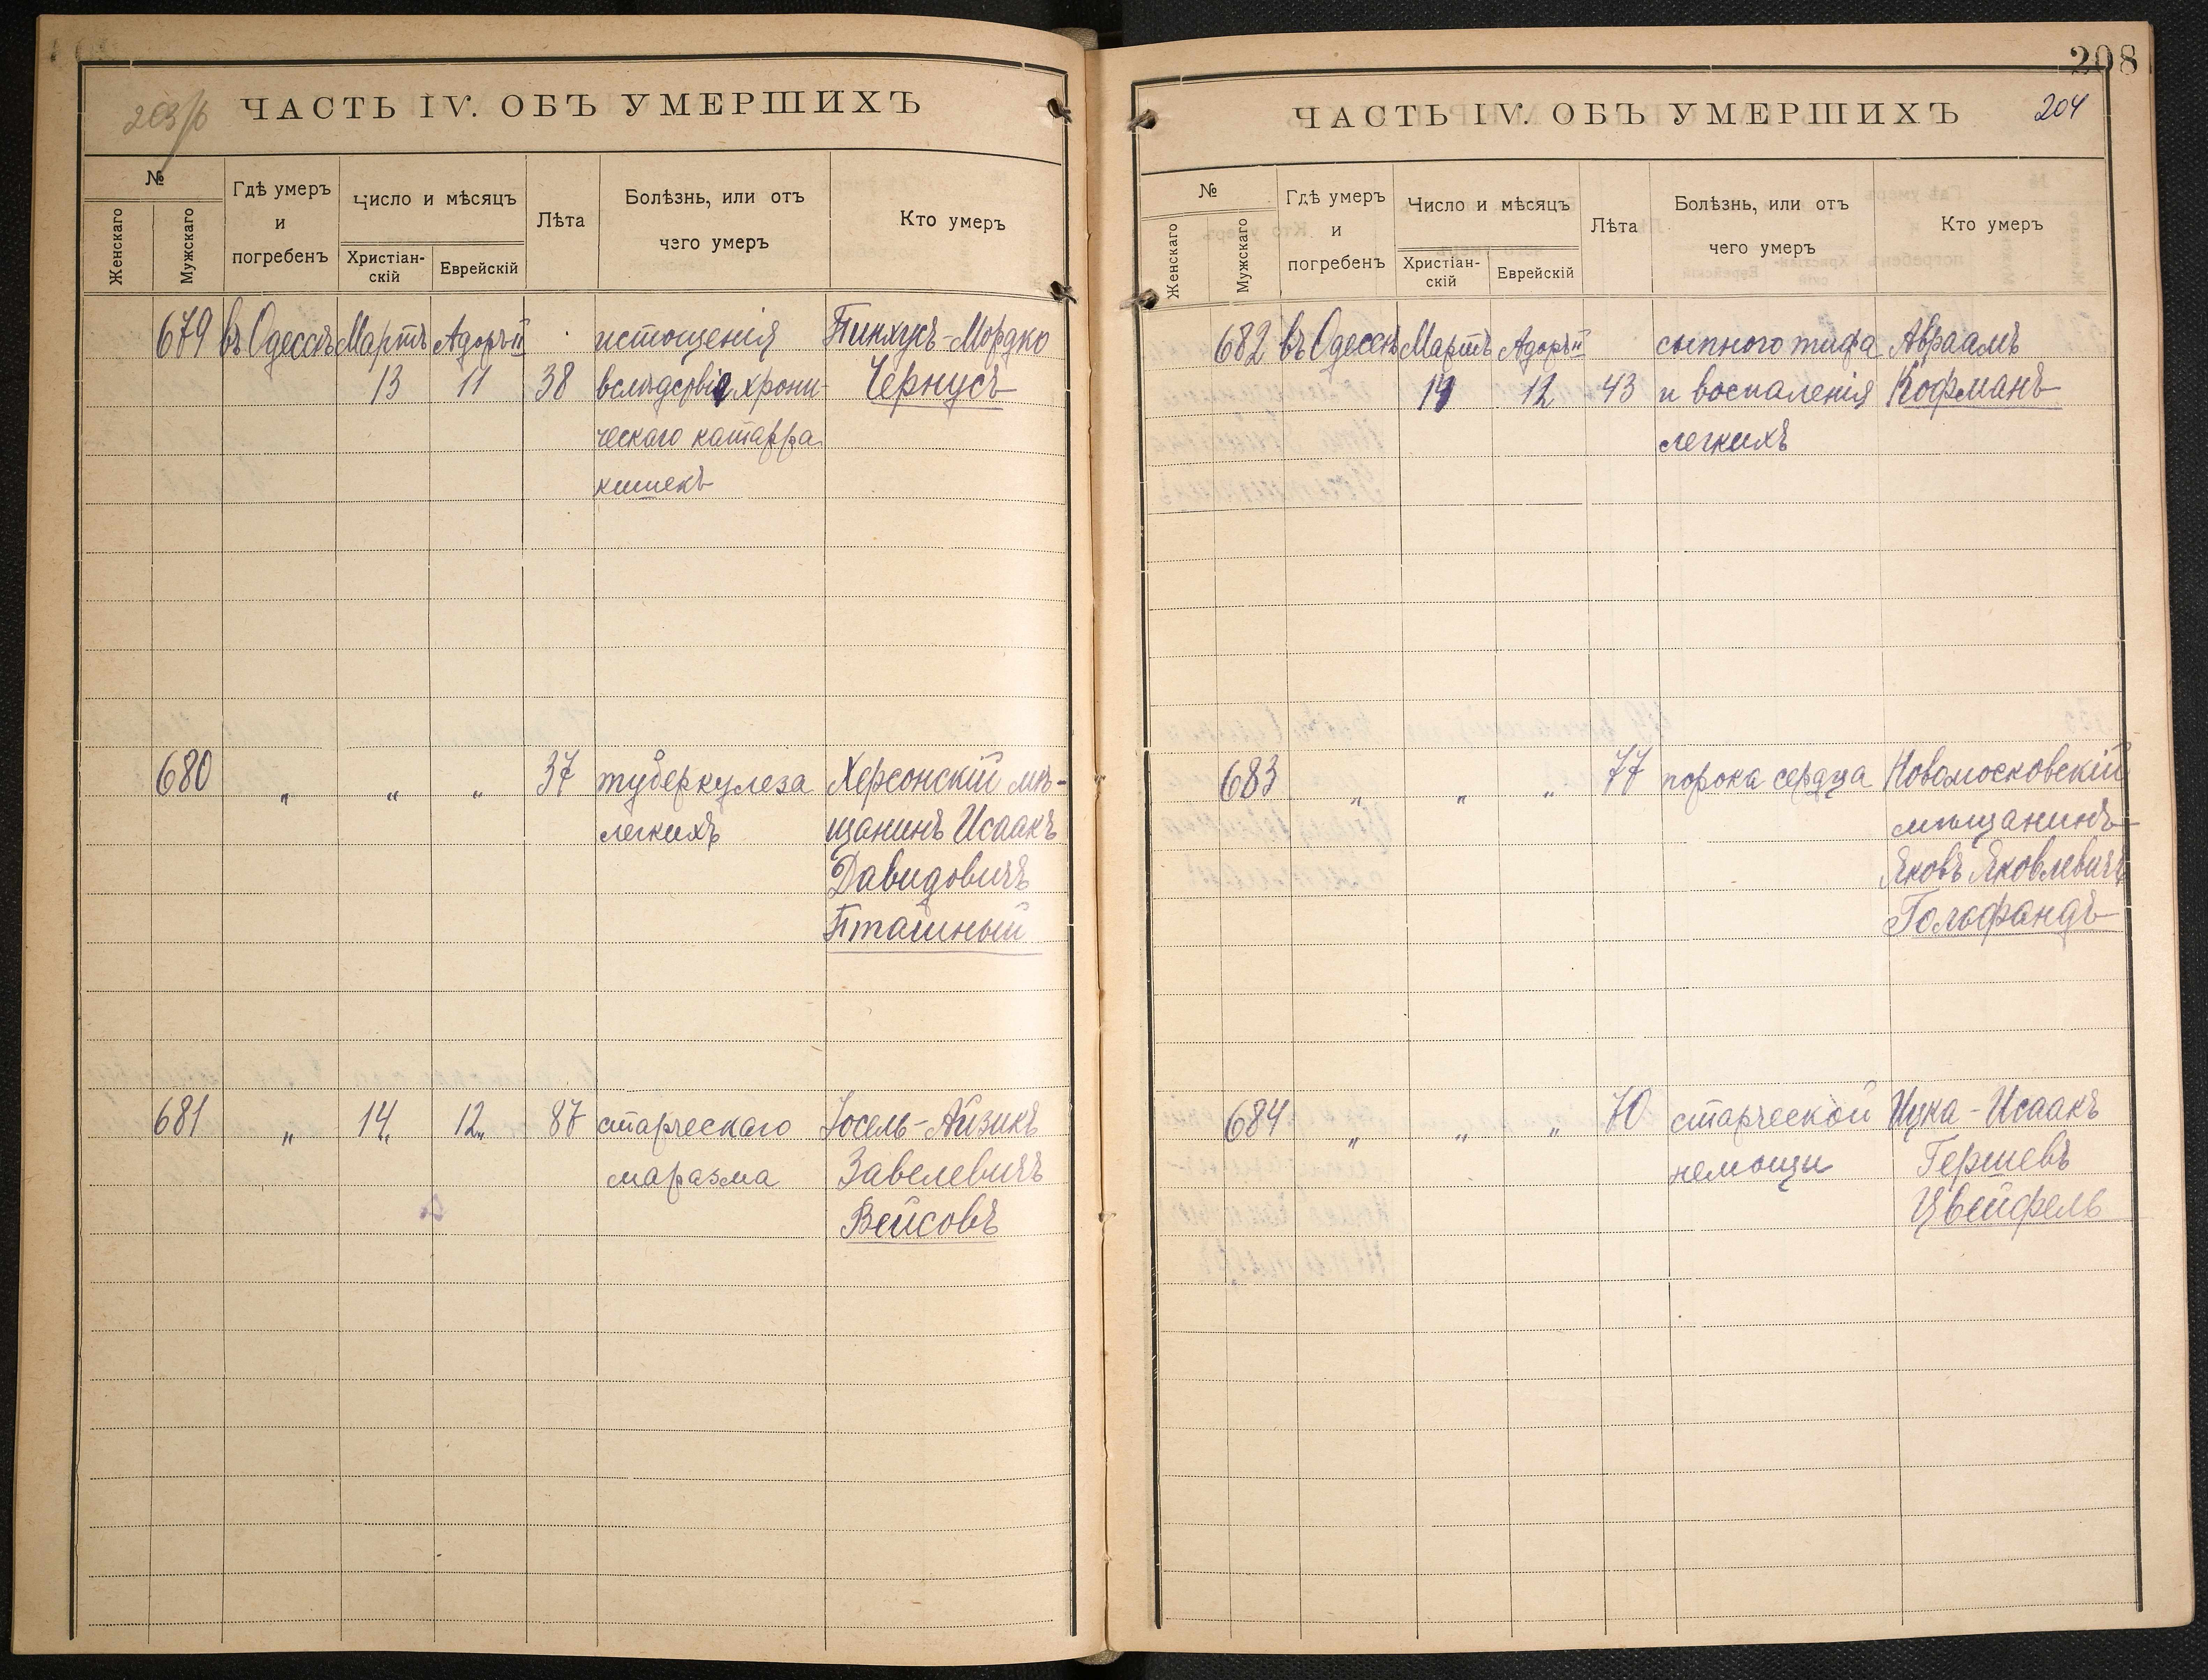 203/б
ЧАСТЬ IV. ОБЪ УМЕРШИХЪ
№
Женскаго
Мужскаго
Гдѣ умеръ
и
погребенъ
Число и мѣсяцъ
Христіан-
скій
Еврейскій
Лѣта
Болѣзнь, или отъ
чего умеръ
Кто умеръ
679 въ Одессѣ Мартъ Адоръ II истощенія Пинхусъ-Мордко
13 11 38 вслѣдсвіе хрони- Чернусъ
ческаго катарра
кишекъ
680 „ „ „ 37 туберкулеза Херсонскій мѣ-
легкихъ щанинъ Исаакъ
Давидовичъ
Пташный
681 „ 14„ 12„ 87 старческаго Іосель-Айзикъ
маразма Завелевичъ
Вейсовъ
208
ЧАСТЬ IV. ОБЪ УМЕРШИХЪ 204
№
Женскаго
Мужскаго
Гдѣ умеръ
и
погребенъ
Число и мѣсяцъ
Христіан-
скій
Еврейскій
Лѣта
Болѣзнь, или отъ
чего умеръ
Кто умеръ
682 въ Одессѣ Мартъ Адоръ II сыпного тифа Авраамъ
14 12 43 и воспаленія Кофманъ
легкихъ
683 „ „ „ 77 порока сердца Новомосковскій
мѣщанинъ
Яковъ Яковлевичъ
Гольфандъ
684 „ „ „ 70 старческой Ицка-Исаакъ
немощи Гершевъ
Цвейфель